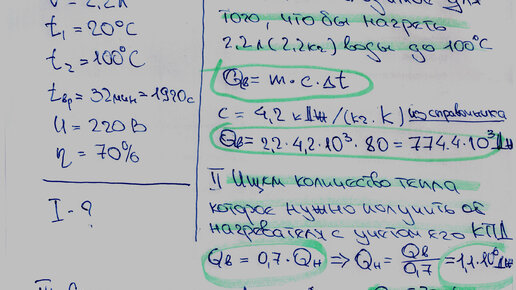 V = 2,2л
t₁ = 20°C
t₂ = 100°C
tвр = 32мин = 1920с
U = 220В
η = 70%
I - ?
того, чтобы нагреть
2.2л (2.2кг) воды до 100°C
Qв = m·c·Δt
c = 4,2 кДж/(кг·К) из справочника
Qв = 2,2·4,2·10³·80 = 774.4·10³Дж
II Ищем количество тепла
которое нужно получить от
нагревателя с учетом его КПД
Qв = 0,7·Qн ⇒ Qн = Qв/0,7 = 1,1·10⁶Дж